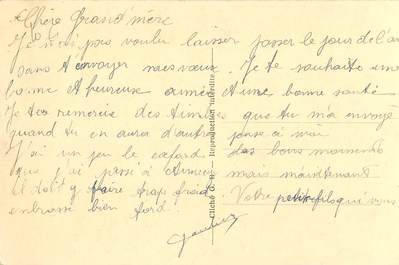 Chère Grand'mère
Je n'ai pas voulu laisser passer le jour de l'an
sans t envoyer mes vœux. Je te souhaite une
bonne et heureuse année et une bonne santé
Je te remercie des timbres que tu m'a envoyé
quand tu en aura d'autres pense à moi
J'ai un peu le cafard des bons moments
que j'ai passé à mais maintenant
il doit y faire trop froid. Votre petit fils qui vous
embrasse bien fort.
Cliché C. B. — Reproduction interdite